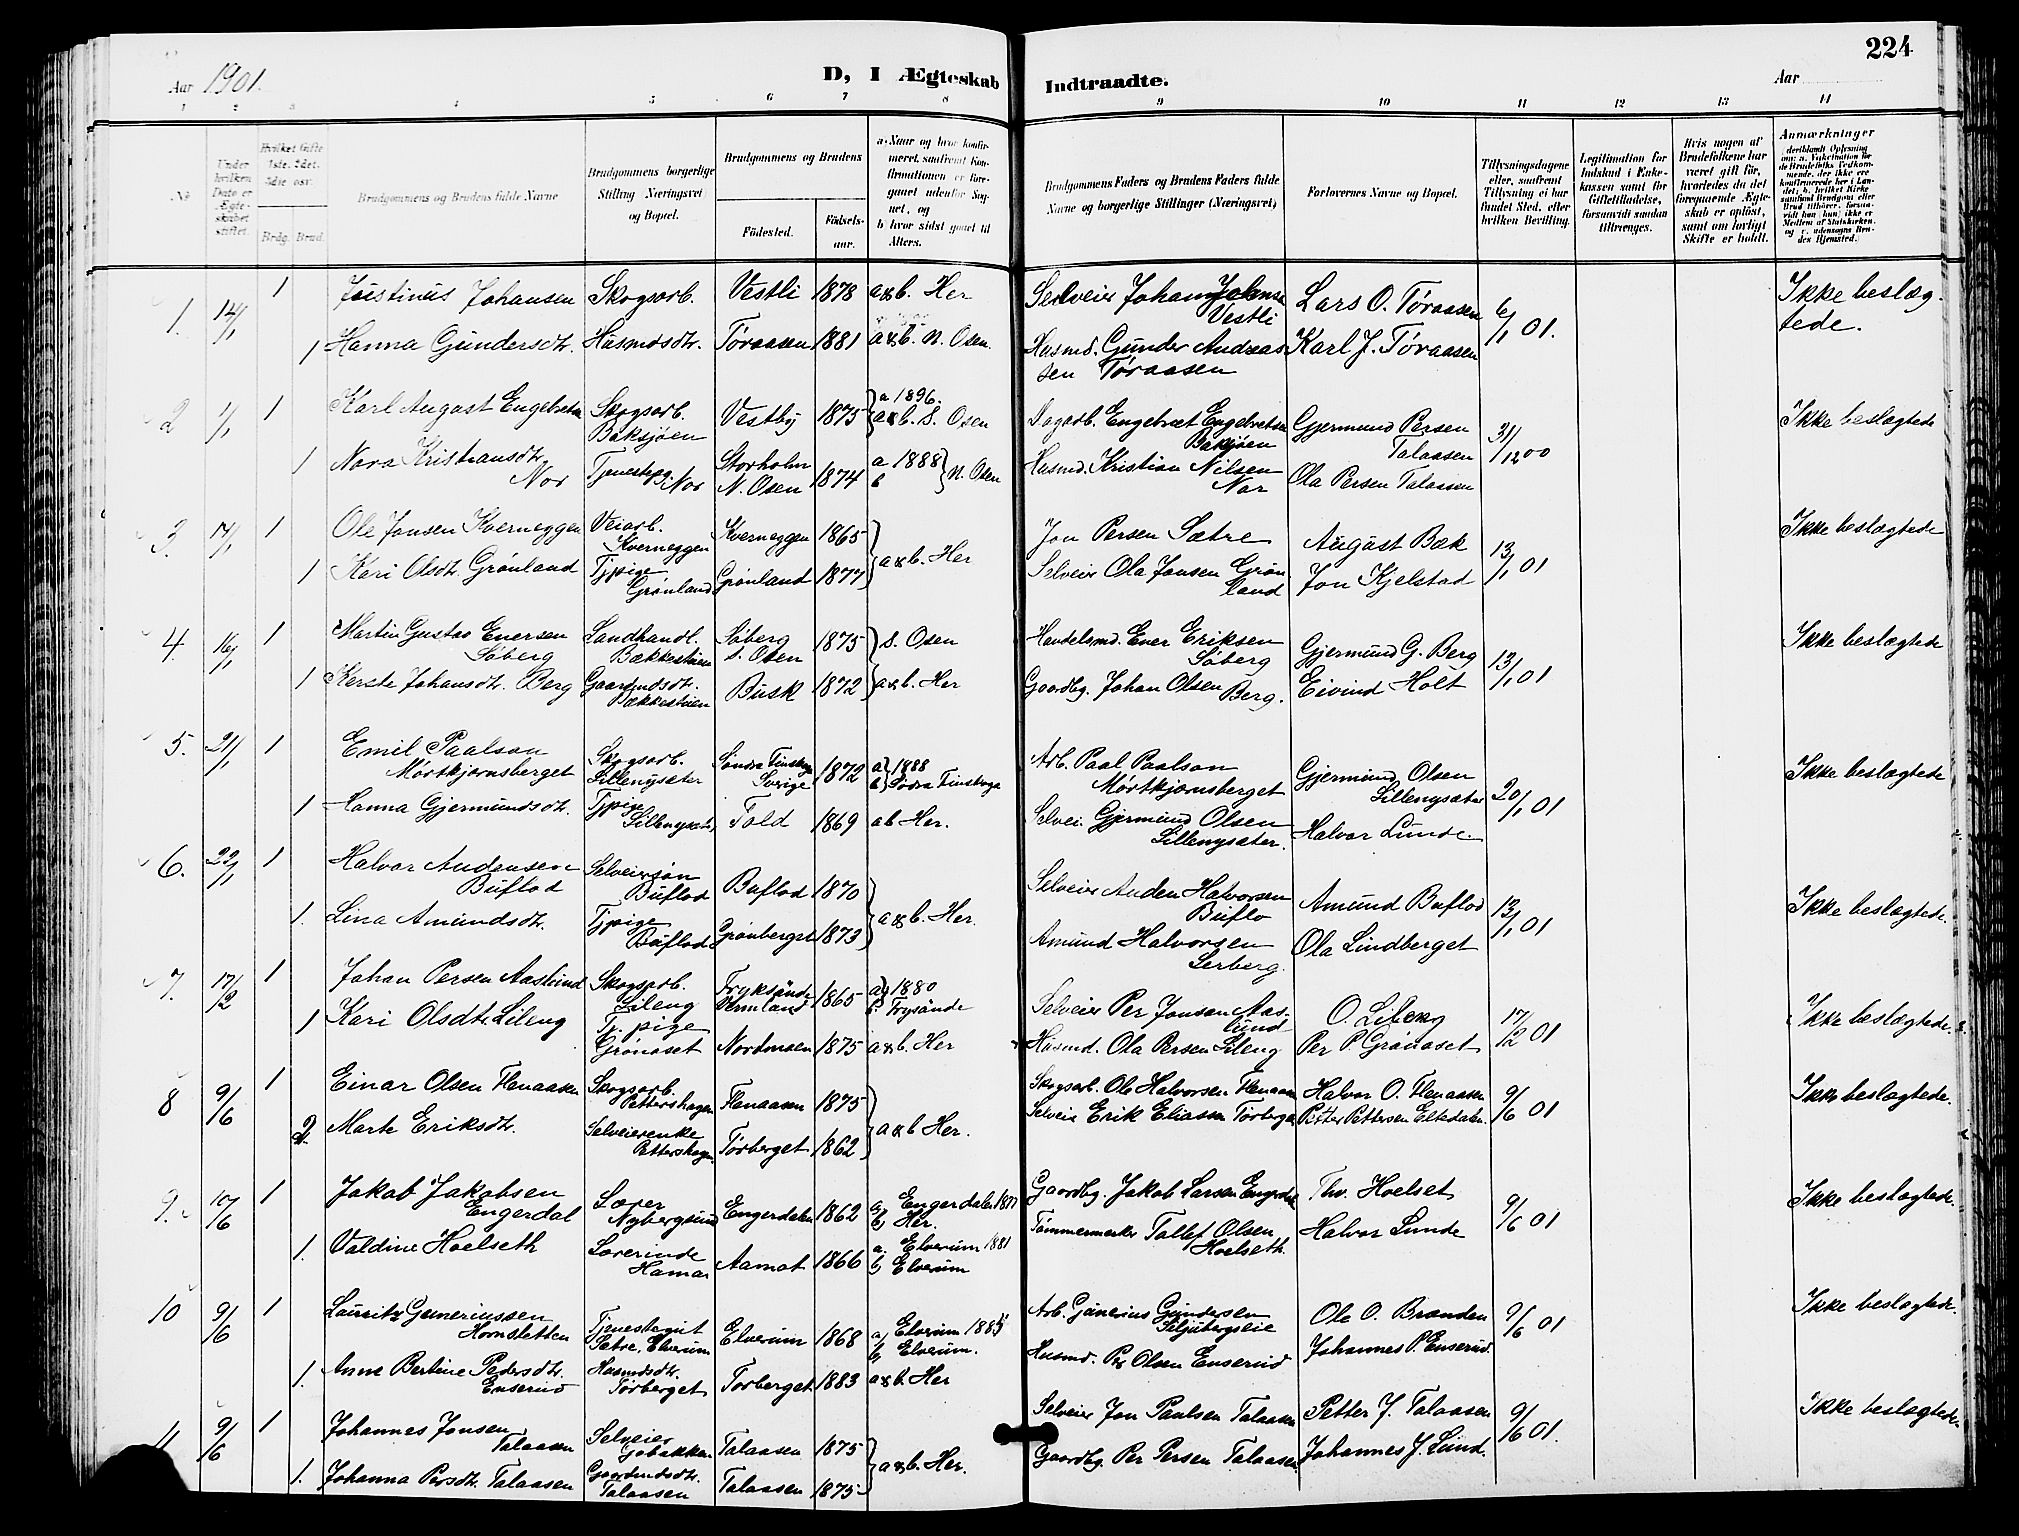 224
Aar 1901.
D, I Ægteskab
Indtraadte.
Aar
1 2 3 4 5 6 7 8 9 10 11 12 13 14
No
Under hvilken Dato er Ægteskabet stiftet.
Hvilket Gifte 1ste. 2det. 3die osv.
Brdg. Brud.
Brudgommens og Brudens fulde Navne
Brudgommens borgerlige Stilling (Næringsvei) og Bopæl.
Brudgommens og Brudens
Fødested.
Fødselsaar.
a. Naar og hvor konfirmeret, saafremt Konfirmationen er foregaaet udenfor Sognet, og
b. hvor sidst gaaet til Alters.
Brudgommens Faders og Brudens Faders fulde Navne og borgerlige Stillinger (Næringsvei)
Forlovernes Navne og Bopæl.
Tillysningsdagene eller, saafremt Tillysning ei har fundet Sted, efter hvilken Bevilling.
Legitimation for Indskud i Enkekassen samt for Giftetilladelse, forsaavidt saadan tiltrænges.
Hvis nogen af Brudefolkene har været gift før, hvorledes da det foregaaende Ægteskab er opløst, samt om lovligt Skifte er holdt.
Anmærkninger
1. 14/1 1 Justinus Johansen Skogsarb. Vestli 1878 a&b. Her Selveier Johan Johnsen Vestli Lars O. Tøraasen 6/1 01. Ikke beslægtede.
1 Hanna Gundersdtr. Husmdsdtr. Tøraasen 1881 a&b. N. Osen. Husmd. Gunder Andreassen Tøraasen Karl J. Tøraasen
2 1/1 1 Karl August Engebretsen Skogsarb. Baksjøen Vestby 1875 a 1896. a&b. S. Osen Dagarb. Engebret Engebretsen Baksjøen Gjermund Persen Talaasen 31/12 00 Ikke beslægtede
1 Nora Kristiansdtr. Nor Tjenestep. Nor Storholm N. Osen 1874 a 1888 b N. Osen Husmd. Kristian Nilsen Nor Ola Persen Talaasen
3. 14/1 1 Ole Jonsen Kverneggen Veiarb. Kverneggen Kverneggen 1865 a&b. Her Jon Persen Sætre August Bæk 13/1 01 Ikke beslægtede
1 Kari Olsdtr. Grønland Tjpige Grønland Grønland 1877 Selveier Ola Jonsen Grønland Jon Kjelstad
4. 16/1 1 Martin Gustav Enersen Søberg Landhandl. Bækkestuen Søberg S. Osen 1875 S. Osen Handelsmd. Ener Eriksen Søberg Gjermund G. Berg 13/1 01 Ikke beslægtede
1 Kerste Johansdtr. Berg Gaardmdsdtr. Bækkestuen Busk 1872 a&b. Her Gaardbg. Johan Olsen Berg. Eivind Holt
5. 21/1 1 Emil Paalson Mørtkjørnsberget Skogsarb. Lillenysæter Søndra Finskoga Sverige 1872 a 1888 b Södra Finskoga Arb. Paal Paalson Mørtkjørnsberget Gjermund Olsen Lillenysæter 20/1 01 Ikke beslægtede
1 Hanna Gjermundsdtr. Tjpige Lillenysæter Fold 1869 ab Her. Selvei. Gjermund Olsen Lillenysæter. Halvor Lunde.
6. 22/1 1 Halvor Audensen Buflod Selveiersøn Buflod Buflod 1870 a&b. Her. Selveier Auden Halvorsen Buflo Amund Buflod 13/1 01 Ikke beslægtede.
1. Lina Amundsdtr. Tjpige Buflod Grønberget 1873 Amund Halvorsen Lerberg. Ola Lindberget
7. 17/2 1 Johan Persen Aaslund Skogsarb. Lileng Fryksände Vermland 1865 a 1880 b. Frysände Selveier Per Jonsen Aaslund O. Liberg 17/2 01 Ikke beslægtede.
1 Kari Olsdtr. Lileng Tj. pige Grønaset Nordmoen 1875 a&b. Her Husmd. Ola Persen Lileng Per P. Grønaset
8 9/6 1 Einar Olsen Flenaasen Skogsarb. Pettershagen Flenaasen 1875 a&b Her. Skogsarb. Ole Halvorsen Flenaasen Halvor O. Flenaasen 9/6 01 Ikke beslægtede.
2. Marte Eriksdtr. Selveierenke Pettershagen. Tørberget 1862 Selveier Erik Eliassen Tørberget Petter Pettersen Eltedalen.
9. 10/6 1 Jakob Jakobsen Engerdal Lærer Nybergsund Engerdalen 1862 a) Engerdalen 1877 b) Her. Gaardbg. Jakob Larsen Engerdal Thv. Hoelset 9/6 01 Ikke beslægtede.
1. Valdine Hoelseth Lærerinde Hamar Aamot 1866 a. Elverum 1881 b) Elverum Tømmermerker Tollef Olsen Hoelseth Halvor Lunde
10 9/6 1 Lauritz Guneriussen Hornsletten Tjenestegut Sætre, Elverum Elverum 1868 a) Elverum 1885 b) Elverum. Arb. Gunerius Gundersen Siljubergseie Ole O. Brænden 9/6 01 Ikke beslægtede.
1. Anne Bertine Pedersdtr. Enserud Husmdsdtr. Tørberget Tørberget 1883 a&b. Her Husmd. Per Olsen Enserud Johannes P. Enserud.
11 9/6 1 Johannes Jonsen Talaasen Selveier Gobakken Talaasen 1875 a&b. Her. Selveier Jon Paulsen Talaasen Petter J. Talaasen 9/6 01. Ikke beslægtede.
1. Johanna Persdtr. Talaasen Gaardmdsdtr. Talaasen Talaasen 1875 Gaardbg. Per Persen Talaasen. Johannes J. Lund.